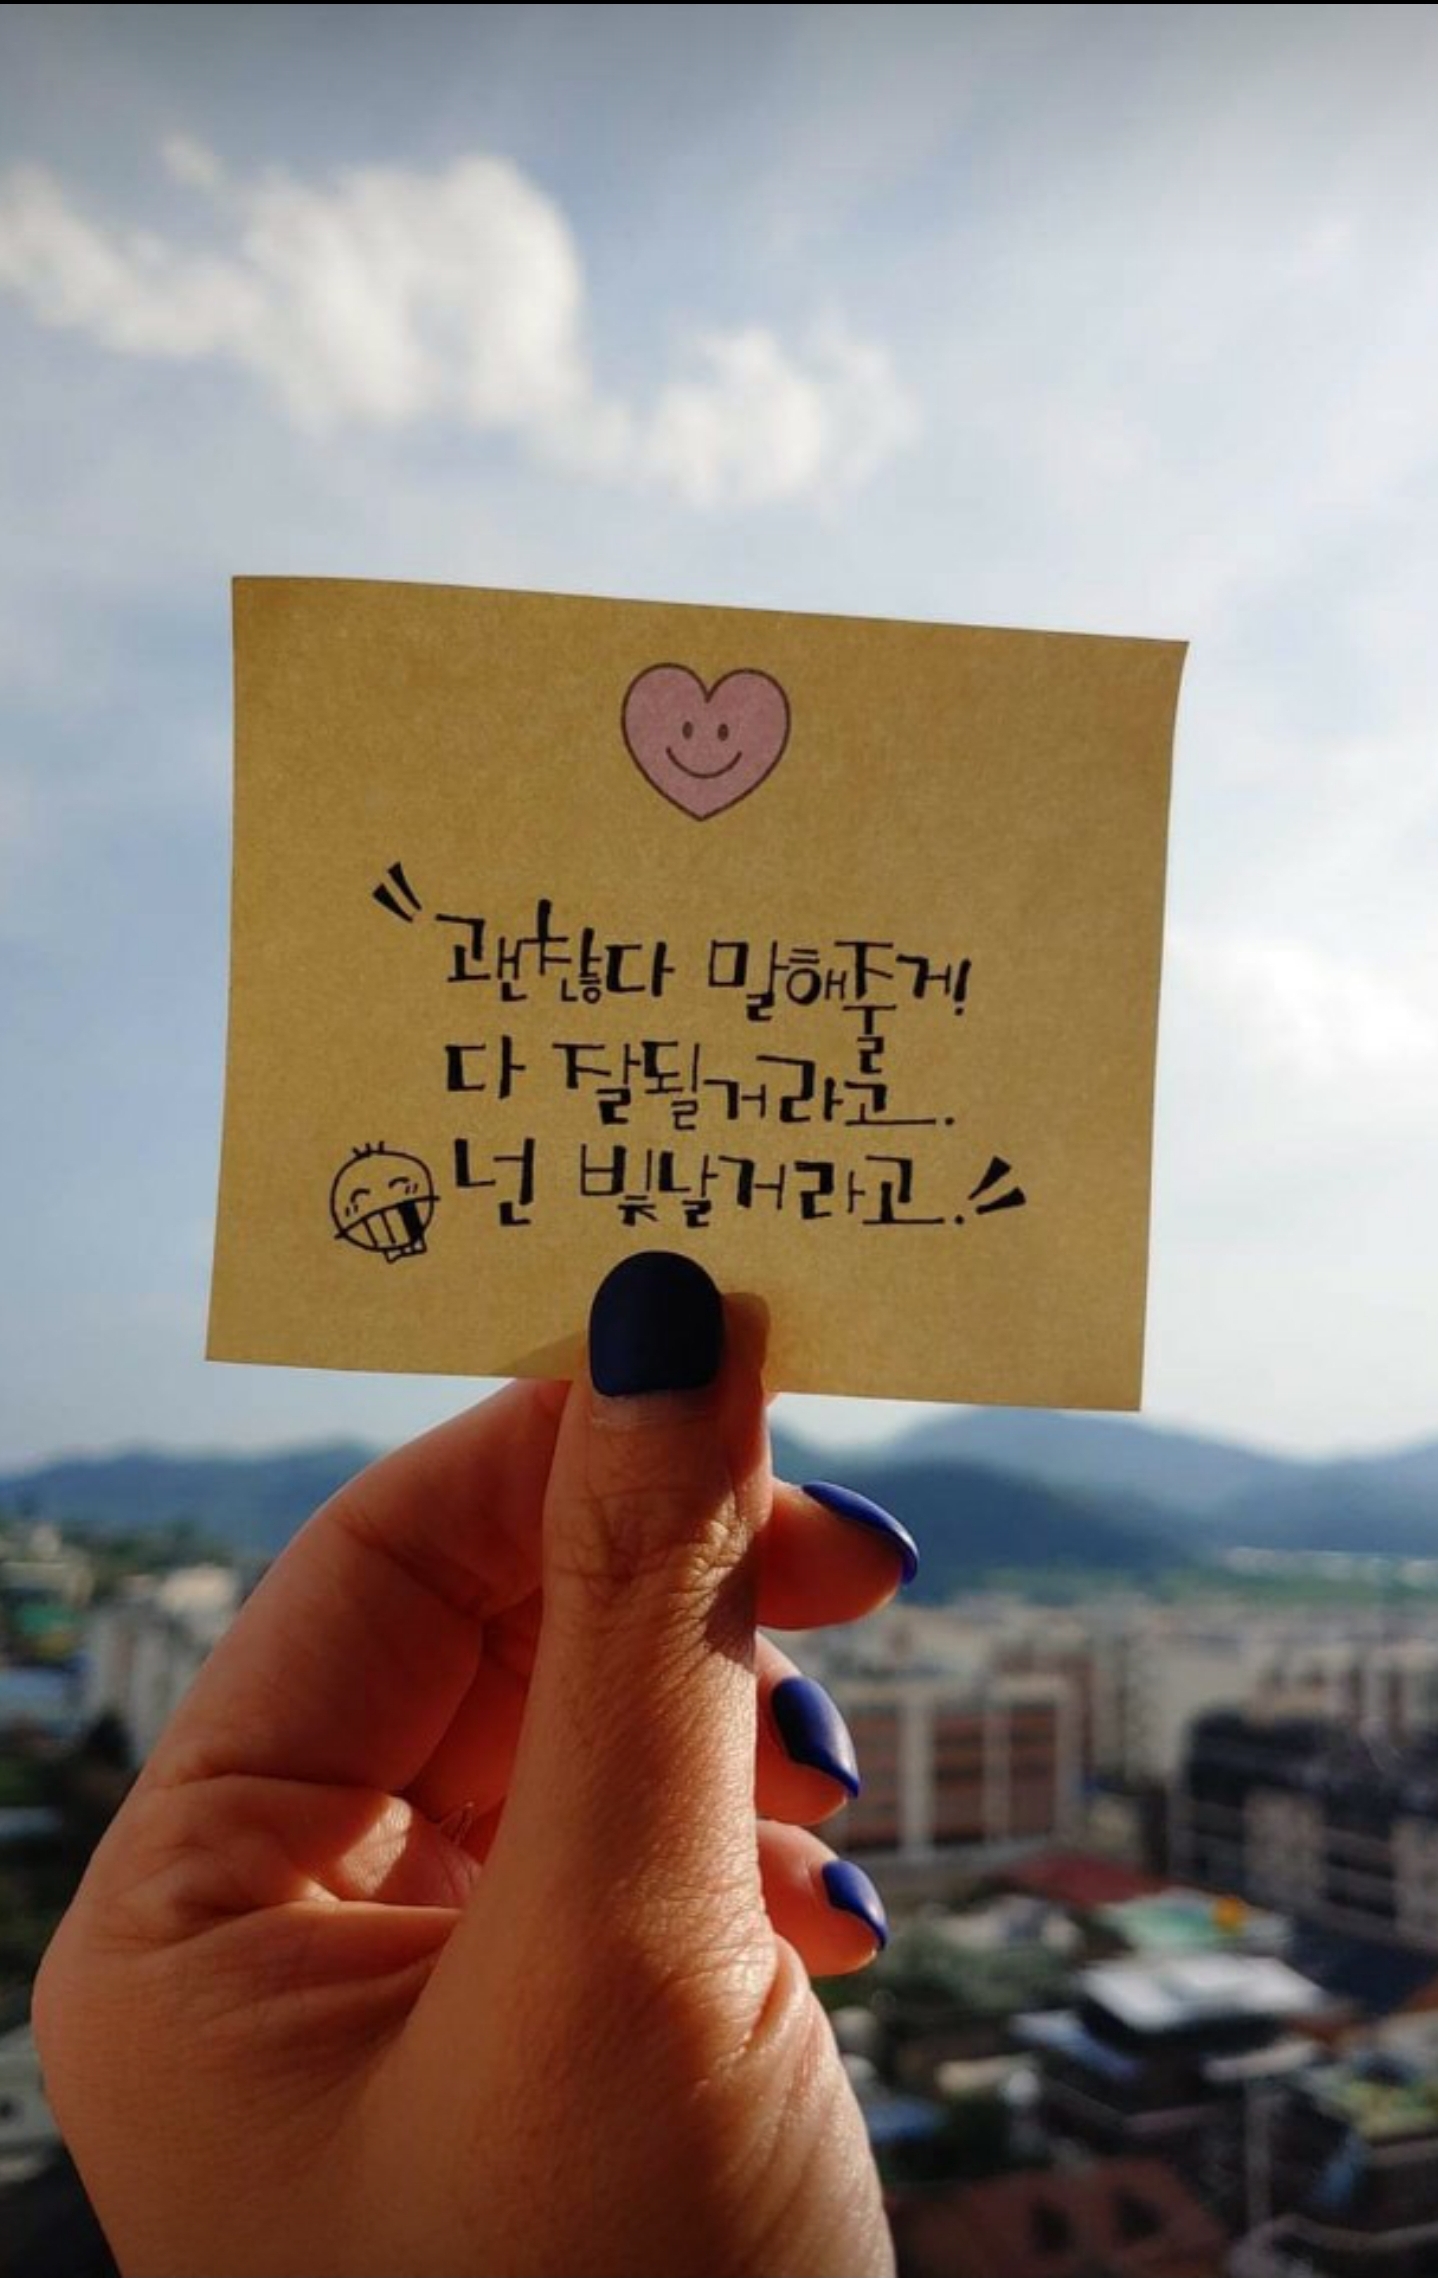 "괜찮다 말해줄게!
다 잘될거라고.
넌 빛날거라고."